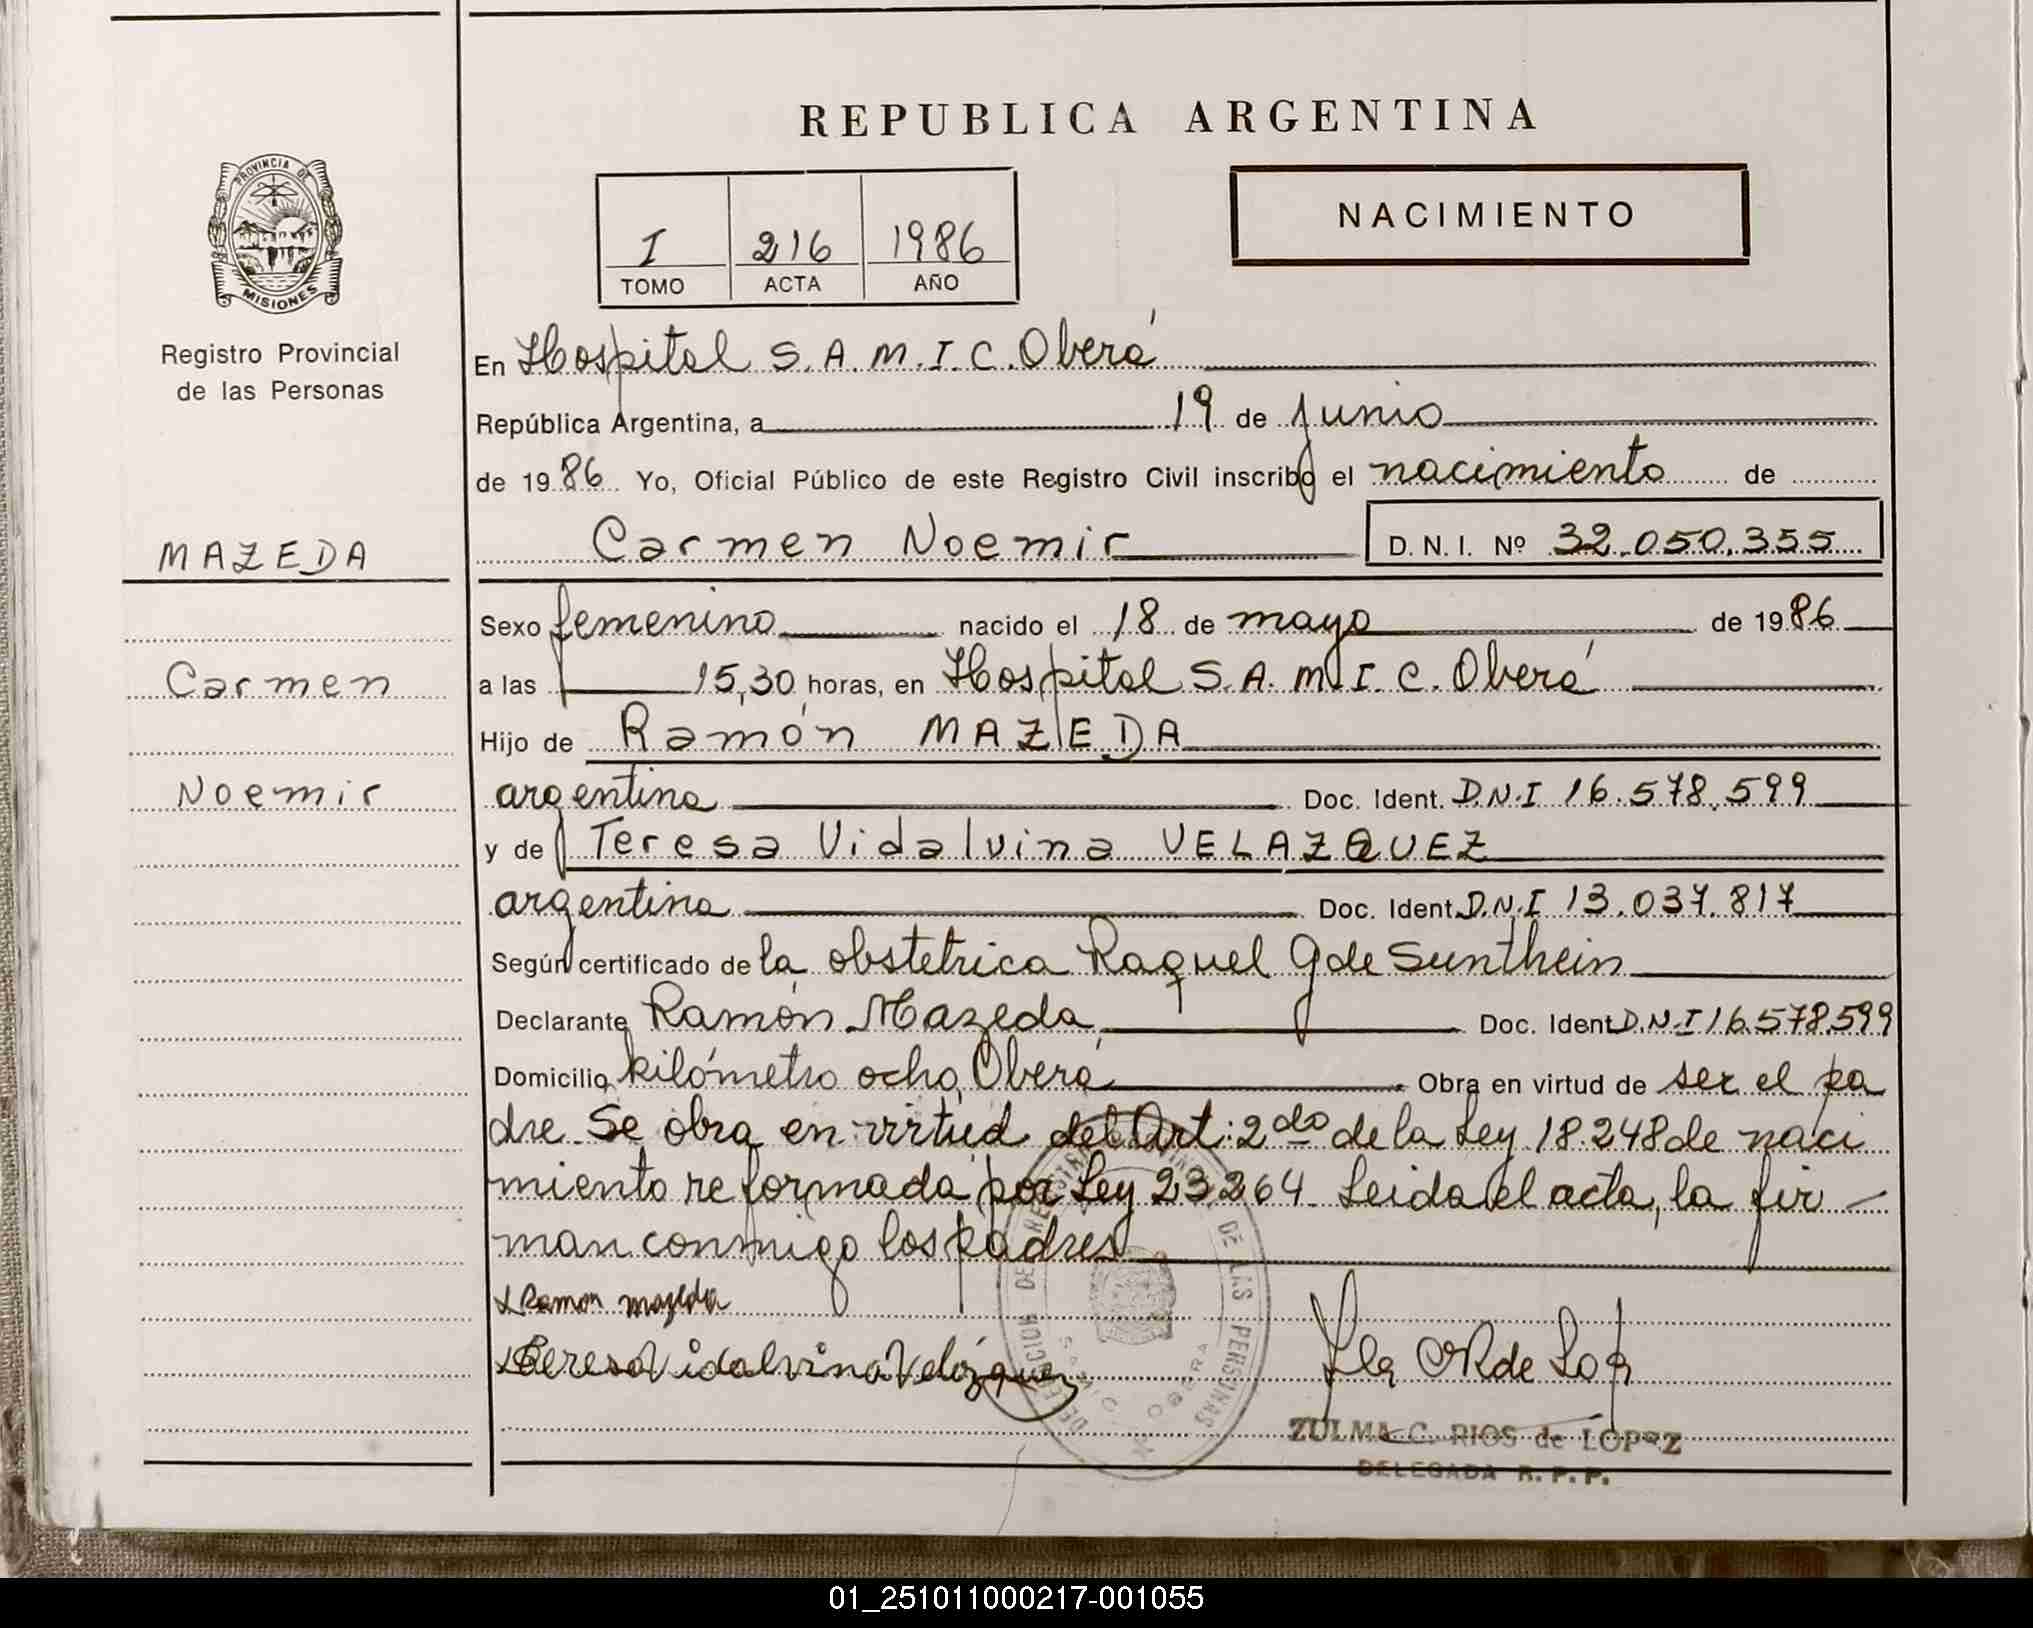 REPUBLICA ARGENTINA
PROVINCIA DE
MISIONES
Registro Provincial
de las Personas
I 216 1986
TOMO ACTA AÑO
NACIMIENTO
En Hospital S.A.M.I.C. Oberá
República Argentina, a 19 de junio
de 1986 Yo, Oficial Público de este Registro Civil inscribo el nacimiento de
Carmen Noemir D.N.I. Nº 32.050.355
MAZEDA
Carmen
Noemir
Sexo femenino nacido el 18 de mayo de 1986
a las 15,30 horas, en Hospital S.A.M.I.C. Oberá
Hijo de Ramón MAZEDA
argentina Doc. Ident. D.N.I 16.578.599
y de Teresa Vidalvina VELAZQUEZ
argentina Doc. Ident. D.N.I 13.037.817
Según certificado de la obstetrica Raquel G de Sunthein
Declarante Ramón Mazeda Doc. Ident D.N.I 16.578.599
Domicilio kilómetro ocho, Oberá Obra en virtud de ser el pa
dre Se obra en virtud del Art: 2do de la Ley 18.248 de naci
miento reformada por Ley 23264 Leida el acta, la fir-
man conmigo los padres
x Ramon mazeda
x Teresa Vidalvina Velázquez
DELEGACION DE REGISTRO PROVINCIAL DE LAS PERSONAS
OBERA
ZULMA C. RIOS de LOPEZ
DELEGADA R.P.P.
01_251011000217-001055